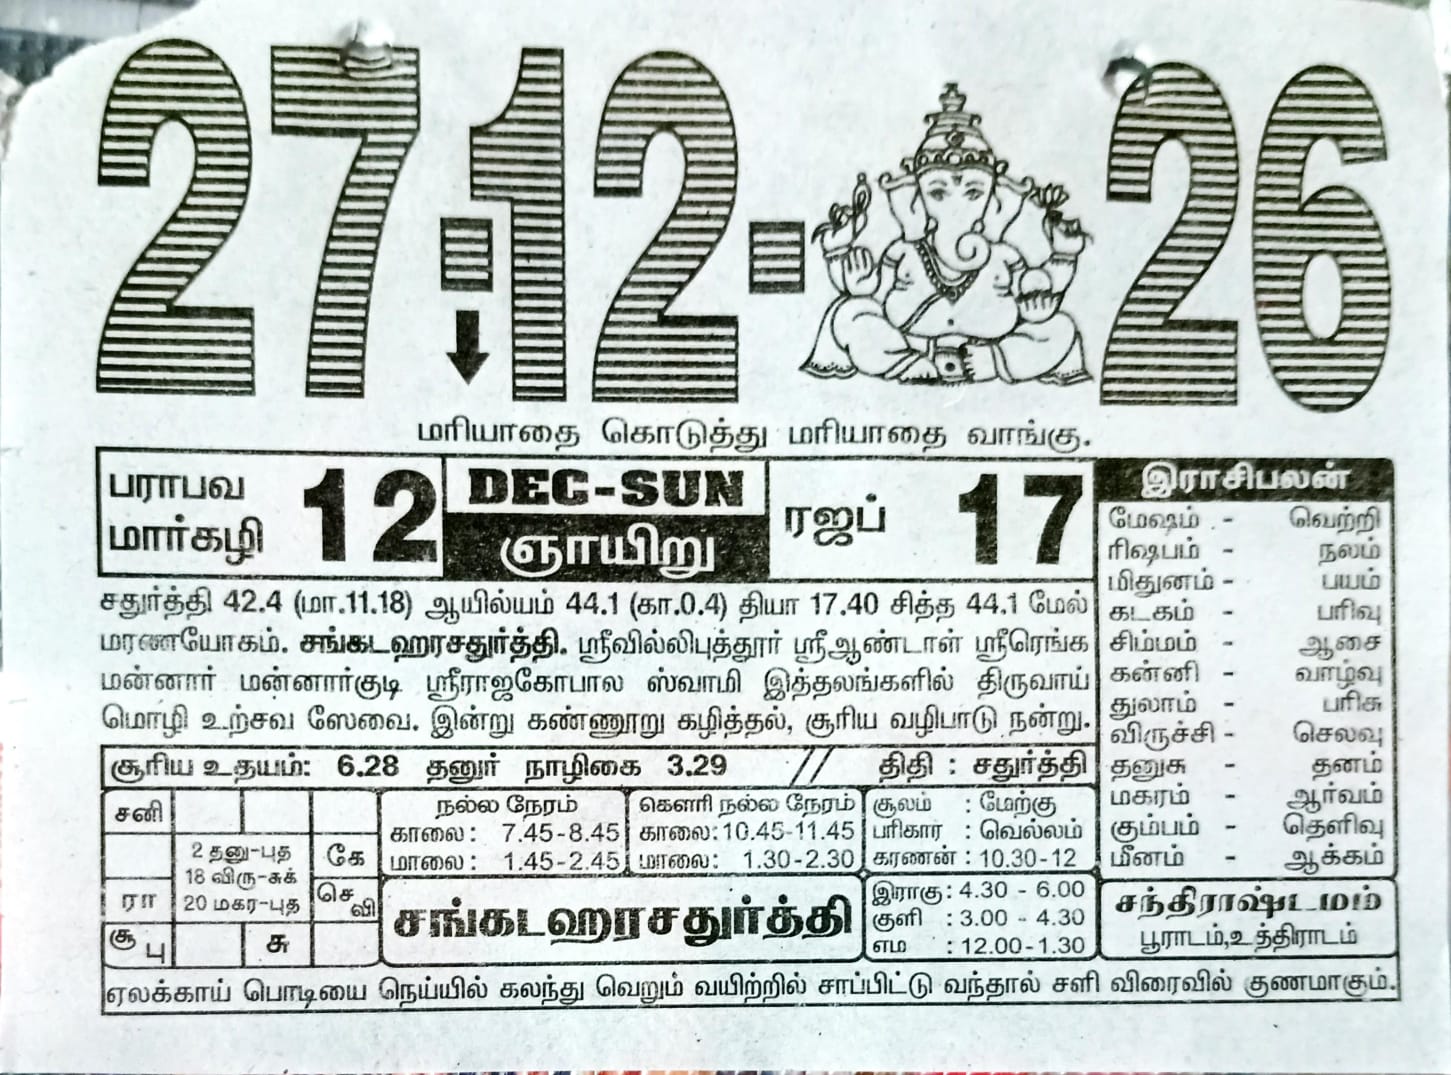 27-12-26
மரியாதை கொடுத்து மரியாதை வாங்கு.
பராபவ
மார்கழி 12
DEC-SUN
ஞாயிறு
ரஜப் 17
சதுர்த்தி 42.4 (மா.11.18) ஆயில்யம் 44.1 (கா.0.4) தியா 17.40 சித்த 44.1 மேல்
மரணயோகம். சங்கடஹரசதுர்த்தி. ஸ்ரீவில்லிபுத்தூர் ஸ்ரீஆண்டாள் ஸ்ரீரெங்க
மன்னார் மன்னார்குடி ஸ்ரீராஜகோபால ஸ்வாமி இத்தலங்களில் திருவாய்
மொழி உற்சவ ஸேவை. இன்று கண்ணூறு கழித்தல், சூரிய வழிபாடு நன்று.
சூரிய உதயம்: 6.28 தனுர் நாழிகை 3.29 // திதி : சதுர்த்தி
சனி
கே
ரா
செ
வி
சூ
பு
சு
2 தனு-புத
18 விரு-சுக்
20 மகர-புத
நல்ல நேரம்
காலை: 7.45-8.45
மாலை: 1.45-2.45
கௌரி நல்ல நேரம்
காலை: 10.45-11.45
மாலை: 1.30-2.30
சூலம் : மேற்கு
பரிகார் : வெல்லம்
கரணன் : 10.30-12
சங்கடஹரசதுர்த்தி
இராகு : 4.30 - 6.00
குளி : 3.00 - 4.30
எம : 12.00-1.30
இராசிபலன்
மேஷம் - வெற்றி
ரிஷபம் - நலம்
மிதுனம் - பயம்
கடகம் - பரிவு
சிம்மம் - ஆசை
கன்னி - வாழ்வு
துலாம் - பரிசு
விருச்சி - செலவு
தனுசு - தனம்
மகரம் - ஆர்வம்
கும்பம் - தெளிவு
மீனம் - ஆக்கம்
சந்திராஷ்டமம்
பூராடம்,உத்திராடம்
ஏலக்காய் பொடியை நெய்யில் கலந்து வெறும் வயிற்றில் சாப்பிட்டு வந்தால் சளி விரைவில் குணமாகும்.